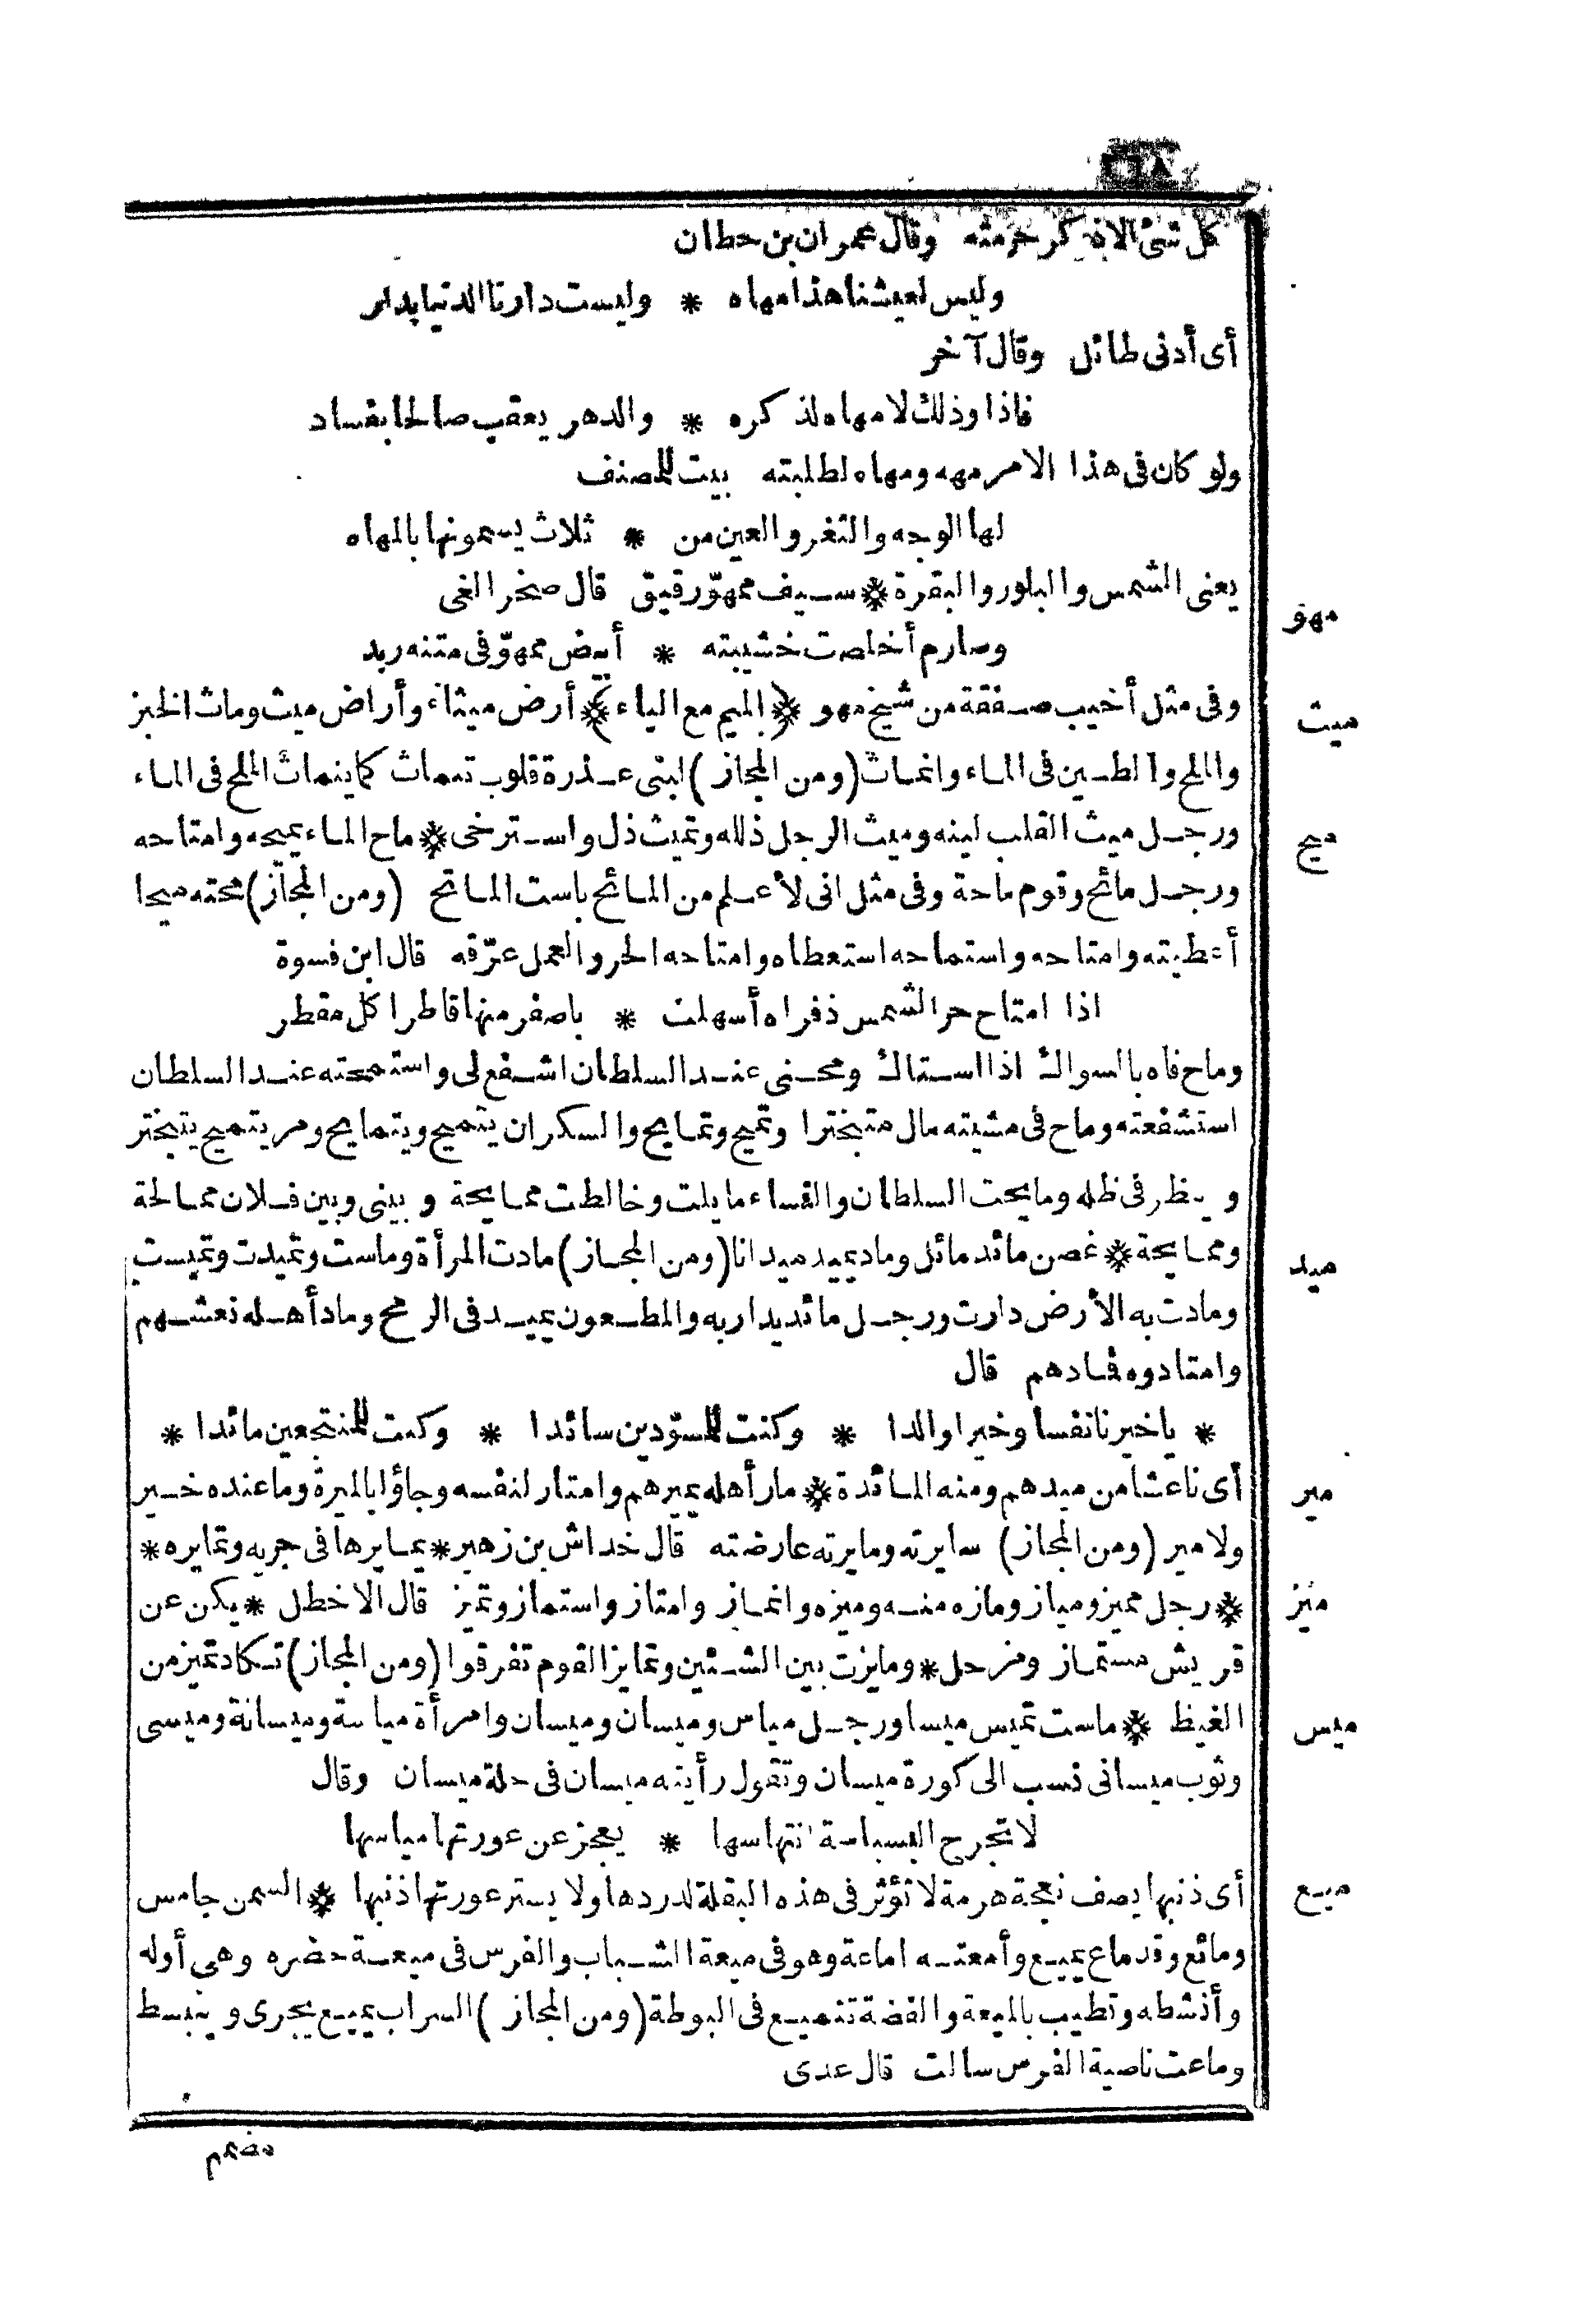 كل شئ الا ذكر حرمته وقال عمران بن حطان
وليس لعيشنا هذا مهاه * وليست دارنا الدنيا بدار
أى أدنى طائل وقال آخر
فاذا وذلك لا مهاه لذكره * والدهر يعقب صالحا بفساد
ولو كان فى هذا الامر مهه ومهاه لطلبته بيت للمصنف
لها الوجه والثغر والعين من * ثلاث يسمونها بالمهاه
يعنى الشمس والبلور والبقرة * سيف ممهوّ رقيق قال صخر الغى
مهو
وصارم أخلصت خشيبته * أبيض ممهوّ فى متنه ربد
وفى مثل أخيب صفقة من شيخ مهو ﴿الميم مع الياء﴾ أرض ميثاء وأراض ميث وماث الخبز
ميث
والملح والطين فى الماء وانماث (ومن المجاز) لبنى عذرة قلوب تنماث كما ينماث الملح فى الماء
ورجل ميث القلب لينه وميث الرجل ذلله وتميث ذل واسترخى * ماح الماء يميحه وامتاحه
ميح
ورجل مائح وقوم ماحة وفى مثل انى لأعلم من المائح باست الماتح (ومن المجاز) محته ميحا
أعطيته وامتاحه واستماحه استعطاه وامتاحه الحر والعمل عرّقه قال ابن فسوة
اذا امتاح حر الشمس ذفراه أسهلت * باصفر منها قاطرا كل مقطر
وماح فاه بالسواك اذا استاك ومحنى عند السلطان اشفع لى واستمحته عند السلطان
استشفعته وماح فى مشيته مال متبخترا وتميح وتمايح والسكران يتميح ويتمايح ومر يتميح يتبختر
وينظر فى ظله ومايحت السلطان والنساء مايلت وخالطت ممايحة وبينى وبين فلان ممالحة
وممايحة * غصن مائد مائل وماد يميد ميدانا (ومن المجاز) مادت المرأة وماست وتميدت وتميست
ميد
ومادت به الأرض دارت ورجل مائد يدار به والمطعون يميد فى الرمح وماد أهله نعشهم
وامتادوه فمادهم قال
* ياخيرنا نفسا وخيرا والدا * وكنت للسوّدين سائدا * وكنت للمنتجعين مائدا *
أى ناعشا من ميدهم ومنه المائدة * مار أهله يميرهم وامتار لنفسه وجاؤا بالميرة وما عنده خير
مير
ولا مير (ومن المجاز) سايرته ومايرته عارضته قال خداش بن زهير * يمايرها فى جريه وتمايره *
* رجل مميز ومياز ومازه منه وميزه وانماز وامتاز واستماز وتميز قال الاخطل * يكن عن
ميز
قريش مستماز ومزحل * ومايزت بين الشيئين وتمايز القوم تفرقوا (ومن المجاز) تكاد تميز من
الغيظ * ماست تميس ميسا ورجل مياس وميسان وميسان وامرأة مياسة وميسانة وميسى
ميس
وثوب ميسانى نسب الى كورة ميسان وتقول رأيته ميسان فى حلة ميسان وقال
لا تجرح البسباسة انتهاسها * يعجز عن عورتها مياسها
أى ذنبها يصف نعجة هرمة لا تؤثر فى هذه البقلة لدردها ولا يستر عورتها ذنبها * السمن جامس
ميع
ومائع وقد ماع يميع وأمعته اماعة وهو فى ميعة الشباب والفرس فى ميعة حضره وهى أوله
وأنشطه وتطيب بالميعة والفضة تتميع فى البوطة (ومن المجاز) السراب يميع يجرى وينبسط
وماعت ناصية الفرس سالت قال عدى